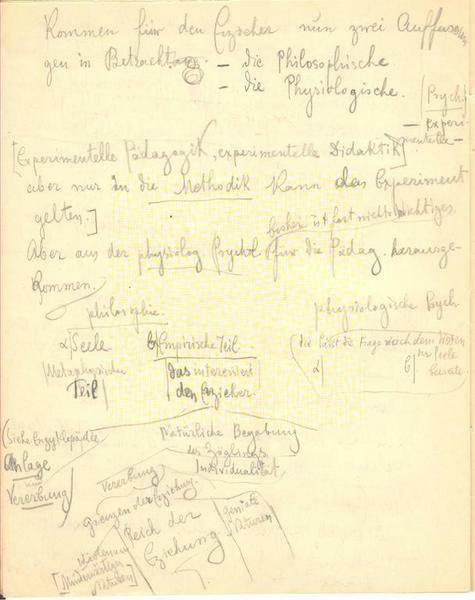 Kommen für den Erzieher nun zwei Auffassun
gen in Betracht
– die Philosophische
– die Physiologische.
Psych
– Experi-
mentelle –
[Experimentelle Pädagogik, experimentelle Didaktik
aber nur in die Methodik kann das Experiment
gelten.]
bisher ist fast nichts wichtiges
Aber aus der physiolog Psychol. für die Pädag. herausge-
kommen.
philosophie.
physiologische Psych
α) Seele
b) Empirische Teil
die läßt die Frage nach dem
Seele
Metaphysischer
Teil
das interessiert
den Erzieher.
α)
b)
(Siehe Enzyklopädie
Natürliche Begabung
des Zöglings
Individualität
Anlage
Vererbung
Vererbung
grenzen der Erziehung.
Reich der
Erziehung
geniale
Naturen
[Minderwertige
Naturen]